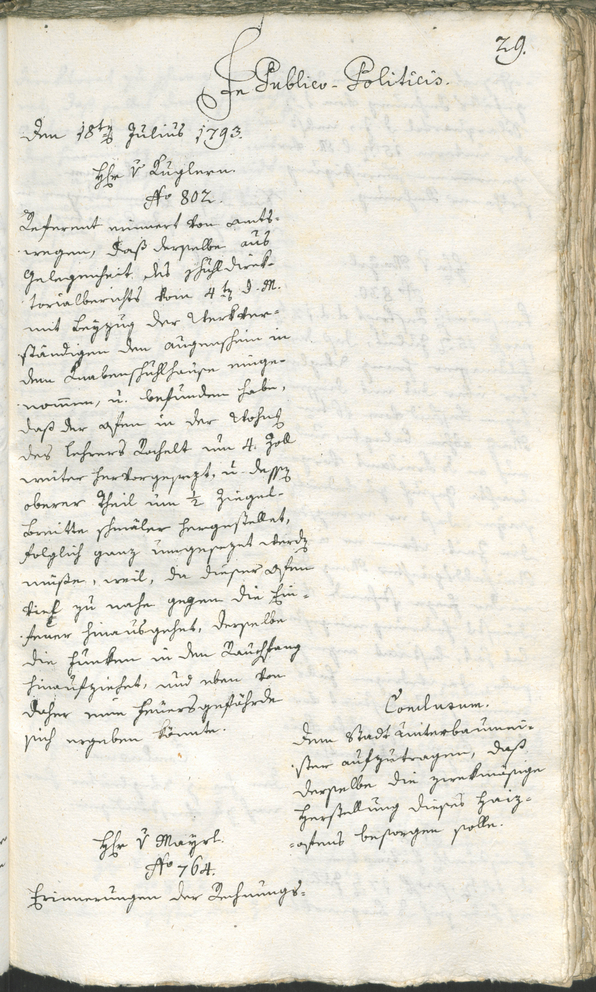 29.
In Publico-Politicis.
Den 18ten Julius 1793.
Hr v Kuglern.
No 802.
Referent erinnert von amts-
wegen, daß derselbe aus
Gelegenheit des Schuldirek-
torialberichts vom 4ten d. M.
mit Beyzug der Werkver-
ständigen den Augenschein in
dem Knabenschuhlhause einge-
nommen, u. befunden habe,
daß der Ofen in der Wohng
des Lehrers Rochelt um 4. Zoll
weiter hervorgesezt, u. dessen
oberer Theil um ½ Ziegel-
breitte schmäler hergestellet,
folglich ganz umgesezt werden
müße, weil, da dieser Ofen
tief zu nahe gegen die Ein-
feuer hinausgehet, derselbe
die Funken in den Rauchfang
hinaufziehet, und eben von
daher eine Feuersgefährde
sich ergeben könnte.
Conclusum.
Dem Stadt Unterbaumei-
ster aufzutragen, daß
derselbe die zwekmäsige
Herstellung dieses Haiz-
ofens besorgen solle.
Hr v Mayrl.
No 764.
Erinnerungen der Rechnungs-